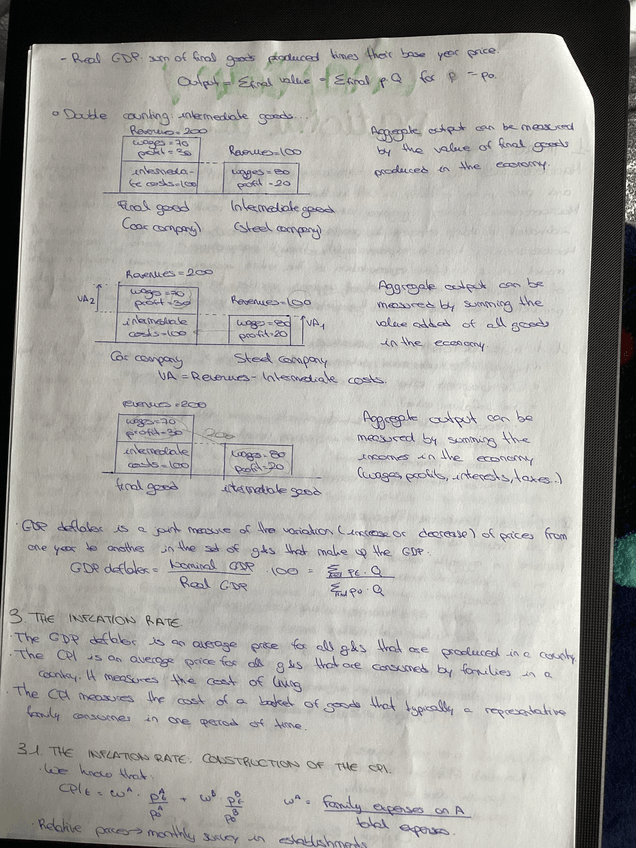 - Real GDP: sum of final goods produced times their base year price
Output = Σfinal value = Σfinal p·Q for p = p₀
Double counting: intermediate goods...
Revenues = 200
wages = 70
profit = 30
intermedia-
te costs = 100
Final good
(car company)
Revenues = 100
wages = 80
profit = 20
Intermediate good
(steel company)
Aggregate output can be measured
by the value of final goods
produced in the economy.
Revenues = 200
VA₂
wages = 70
profit = 30
intermediate
costs = 100
Car company
Revenues = 100
wages = 80
profit = 20
VA₁
Steel company
VA = Revenues - Intermediate costs.
Aggregate output can be
measured by summing the
value added of all goods
in the economy
revenues = 200
wages = 70
profit = 30
intermediate
costs = 100
final good
200
wages = 80
profit = 20
intermediate good
Aggregate output can be
measured by summing the
incomes in the economy
(wages, profits, interests, taxes..)
· GDP deflator is a joint measure of the variation (increase or decrease) of prices from
one year to another in the set of g&s that make up the GDP.
GDP deflator = Nominal GDP / Real GDP · 100 = Σfinal pt · Q / Σfinal p₀ · Q
3. THE INFLATION RATE
· The GDP deflator is an average price for all g&s that are produced in a country
· The CPI is an average price for all g&s that are consumed by families in a
country. It measures the cost of living
· The CPI measures the cost of a basket of goods that typically a representative
family consumes in one period of time.
3.1 THE INFLATION RATE: CONSTRUCTION OF THE CPI.
· We know that:
CPIt = wᴬ · ptᴬ / p₀ᴬ + wᴮ ptᴮ / p₀ᴮ wᴬ = family expenses on A / total expenses.
· Relative prices → monthly survey in establishments